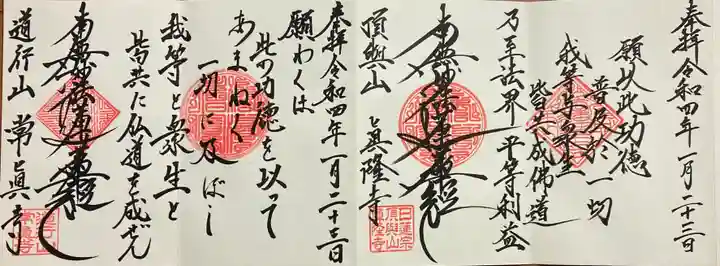 奉拝 令和四年一月二十三日
願以此功徳
普及於一切
我等与衆生
皆共成佛道
乃至法界平等利益
南無妙法蓮華経
頂興山 真隆寺
日蓮宗
頂興山
真隆寺
奉拝 令和四年一月二十三日
願わくは
此の功徳を以って
あまねく
一切に及ぼし
我等と衆生と
皆共に仏道を成ぜん
南無妙法蓮華経
道行山 常真寺